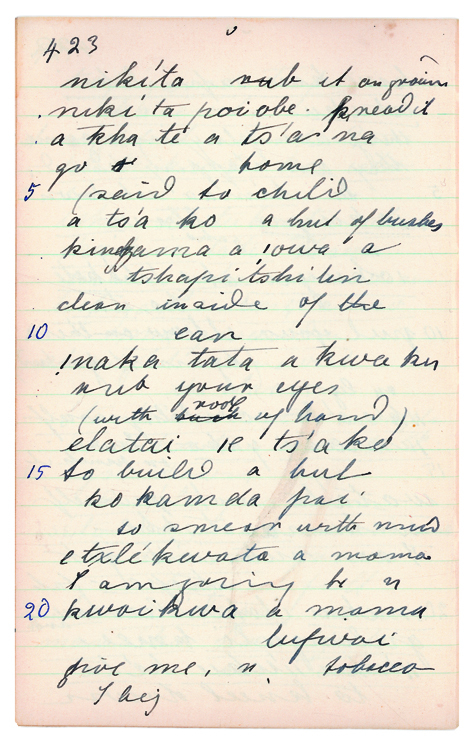 423
nikíta rub it on groin
nikí ta poiobe. knead it
a kha te a ts'a na
go home
5 (said to child
a ts'a ko a hut of bushes
a ! owa a
tshapi tshilin
clean inside of the
10 ear
!naka tata a kwa ku
rub your eyes
(with of hand)
elatai ie ts'ako
15 to build a hut
ko kamda pai
to smear with mud
kwata a mama
I am going to
20 kwaikwa a mama
lufwai
give me, tobacco
I beg